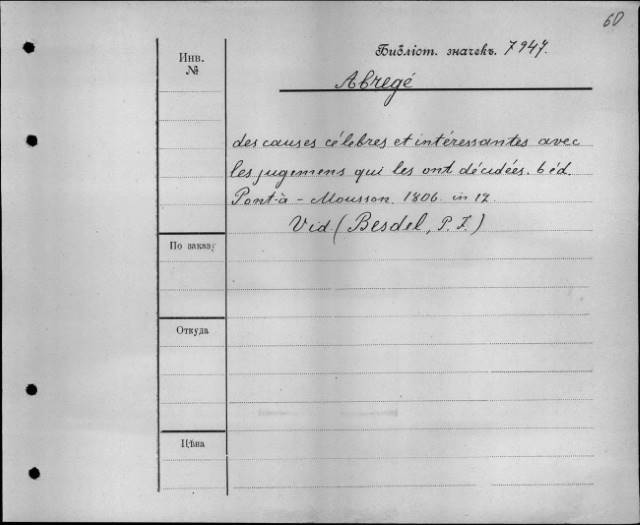 60
Библіот. значекъ. 7947.
Инв.
№
Abregé
des causes célebres et intéressantes avec
les jugemens qui les ont décidées. 6 éd.
Pont-à-Mousson. 1806. in 12.
Vid. (Besdel, P. F.)
По заказу
Откуда
Цѣна